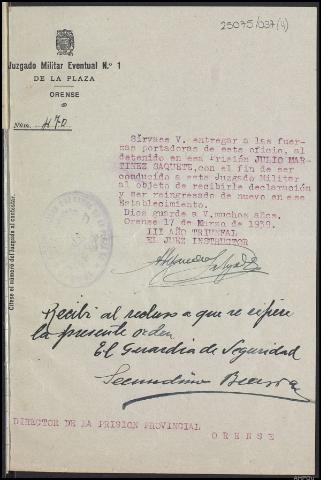 25075/037(4)
Juzgado Militar Eventual N.º 1
DE LA PLAZA
ORENSE
Núm. 470
Sírvase V. entregar a las fuer-
zas portadoras de este oficio, al
detenido en esa Prisión JULIO MAR-
TINEZ SAQUETE, con el fin de ser
conducido a este Juzgado Militar
al objeto de recibirle declaración
y ser reingresado de nuevo en ese
Establecimiento.
Dios guarde a V. muchos años.
Orense 17 de Marzo de 1939.
III AÑO TRIUNFAL
EL JUEZ INSTRUCTOR
Cítese el número del Juzgado al contestar.
Recibí al recluso a que se refiere
la presente orden
El Guardia de Seguridad
Secundino
DIRECTOR DE LA PRISION PROVINCIAL
ORENSE
AHPOU